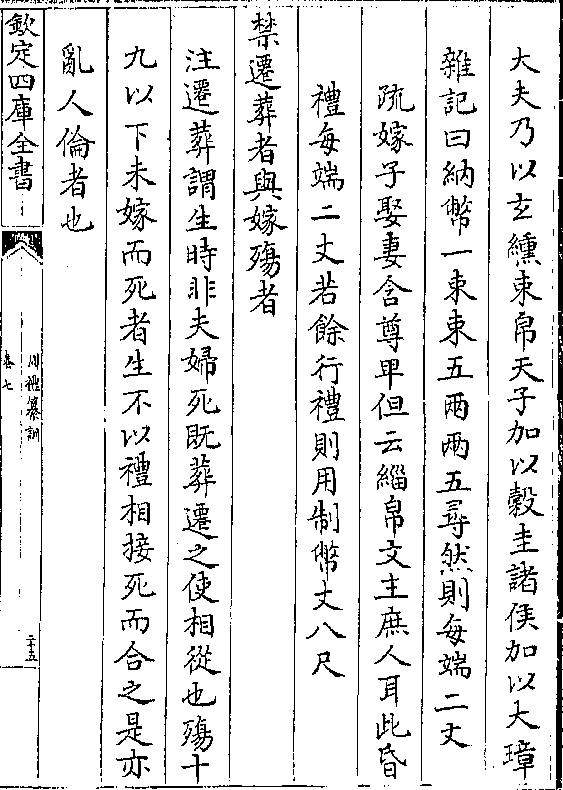 大夫乃以玄纁束帛天子加以穀圭諸侯加以大璋
雜記曰納幣一束束五兩兩五尋然則每端二丈
疏嫁子娶妻含尊卑但云緇帛文主庶人耳此昏
禮每端二丈若餘行禮則用制幣丈八尺
禁遷葬者與嫁殤者
注遷葬謂生時非夫婦死既葬遷之使相從也殤十
九以下未嫁而死者生不以禮相接死而合之是亦
亂人倫者也
欽定四庫全書
周禮纂訓
卷七
二十五